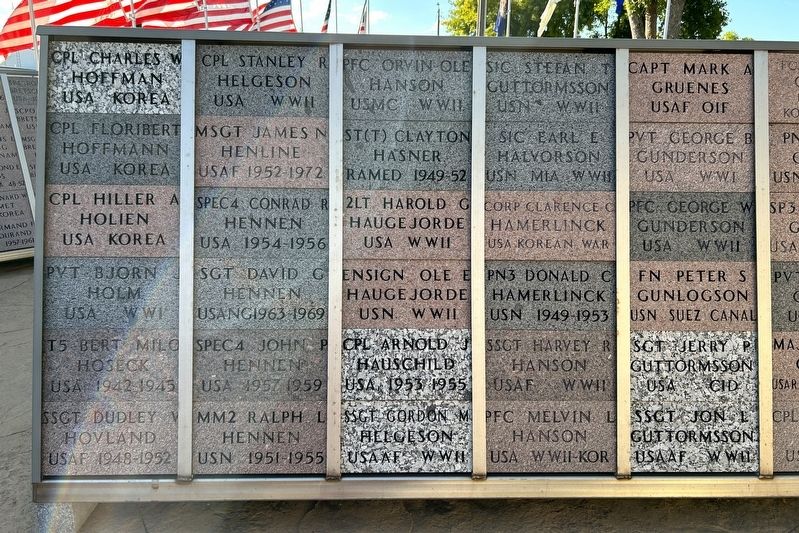 CPL CHARLES W
HOFFMAN
USA KOREA
CPL FLORIBERT
HOFFMANN
USA KOREA
CPL HILLER A
HOLIEN
USA KOREA
PVT BJORN J
HOLM
USA WWI
T5 BERT MILO
HOSECK
USA 1942-1945
SSGT DUDLEY V
HOVLAND
USAF 1948-1952
CPL STANLEY R
HELGESON
USA WWII
MSGT JAMES N
HENLINE
USAF 1952-1972
SPEC4 CONRAD R
HENNEN
USA 1954-1956
SGT DAVID G
HENNEN
USANG1963-1969
SPEC4 JOHN P
HENNEN
USA 1957-1959
MM2 RALPH L
HENNEN
USN 1951-1955
PFC ORVIN OLE
HANSON
USMC WWII
ST(T) CLAYTON
HASNER
RAMED 1949-52
2LT HAROLD G
HAUGEJORDE
USA WWII
ENSIGN OLE E
HAUGEJORDE
USN WWII
CPL ARNOLD J
HAUSCHILD
USA 1953-1955
SSGT GORDON M
HELGESON
USAAF WWII
SIC STEFAN T
GUTTORMSSON
USN WWII
SIC EARL E
HALVORSON
USN MIA WWII
CORP CLARENCE C
HAMERLINCK
USA KOREAN WAR
PN3 DONALD C
HAMERLINCK
USN 1949-1953
SSGT HARVEY R
HANSON
USAF WWII
PFC MELVIN L
HANSON
USA WWII-KOR
CAPT MARK A
GRUENES
USAF OIF
PVT GEORGE B
GUNDERSON
USA WWI
PFC GEORGE W
GUNDERSON
USA WWII
FN PETER S
GUNLOGSON
USN SUEZ CANAL
SGT JERRY P
GUTTORMSSON
USA CID
SSGT JON L
GUTTORMSSON
USAAF WWII